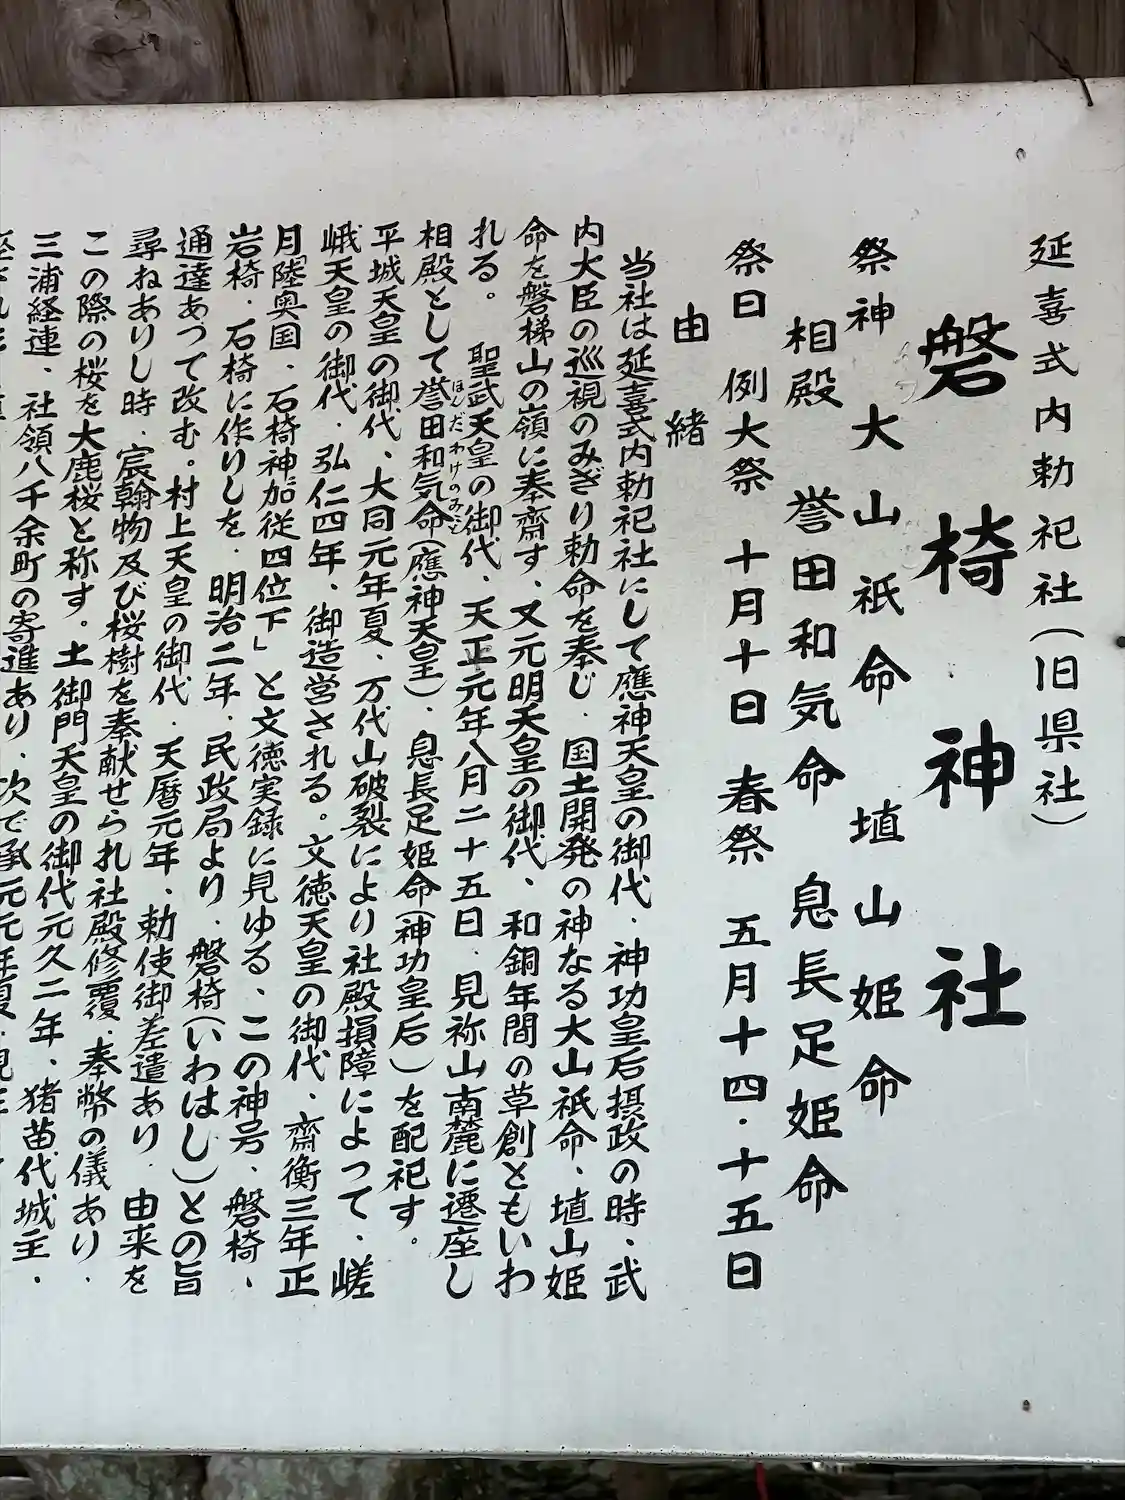 延喜式内勅祀社(旧県社)
磐椅神社
祭神 大山祇命 埴山姫命
相殿 誉田和気命 息長足姫命
祭日 例大祭 十月十日 春祭 五月十四・十五日
由緒
当社は延喜式内勅祀社にして應神天皇の御代、神功皇后摂政の時、武
内大臣の巡視のみぎり勅命を奉じ、国土開発の神なる大山祇命、埴山姫
命を磐梯山の嶺に奉齋す、又元明天皇の御代、和銅年間の草創ともいわ
れる。 聖武天皇の御代、天正元年八月二十五日、見祢山南麓に遷座し
相殿として誉田和気命(應神天皇)、息長足姫命(神功皇后)を配祀す。
ほんだわけのみこ
平城天皇の御代、大同元年夏、万代山破裂により社殿損障によって、嵯
峨天皇の御代、弘仁四年、御造営される。文徳天皇の御代、齋衡三年正
月「陸奥国、石椅神加従四位下」と文徳実録に見ゆる、この神号、磐椅、
岩椅、石椅に作りしを、明治二年、民政局より、磐椅(いわはし)との旨
通達あって改む。村上天皇の御代、天暦元年、勅使御差遣あり、由来を
尋ねありし時、宸翰物及び桜樹を奉献せられ社殿修覆、奉幣の儀あり、
この際の桜を大鹿桜と称す。土御門天皇の御代元久二年、猪苗代城主、
三浦経連、社領八千余町の寄進あり、次で承元元年夏、現在